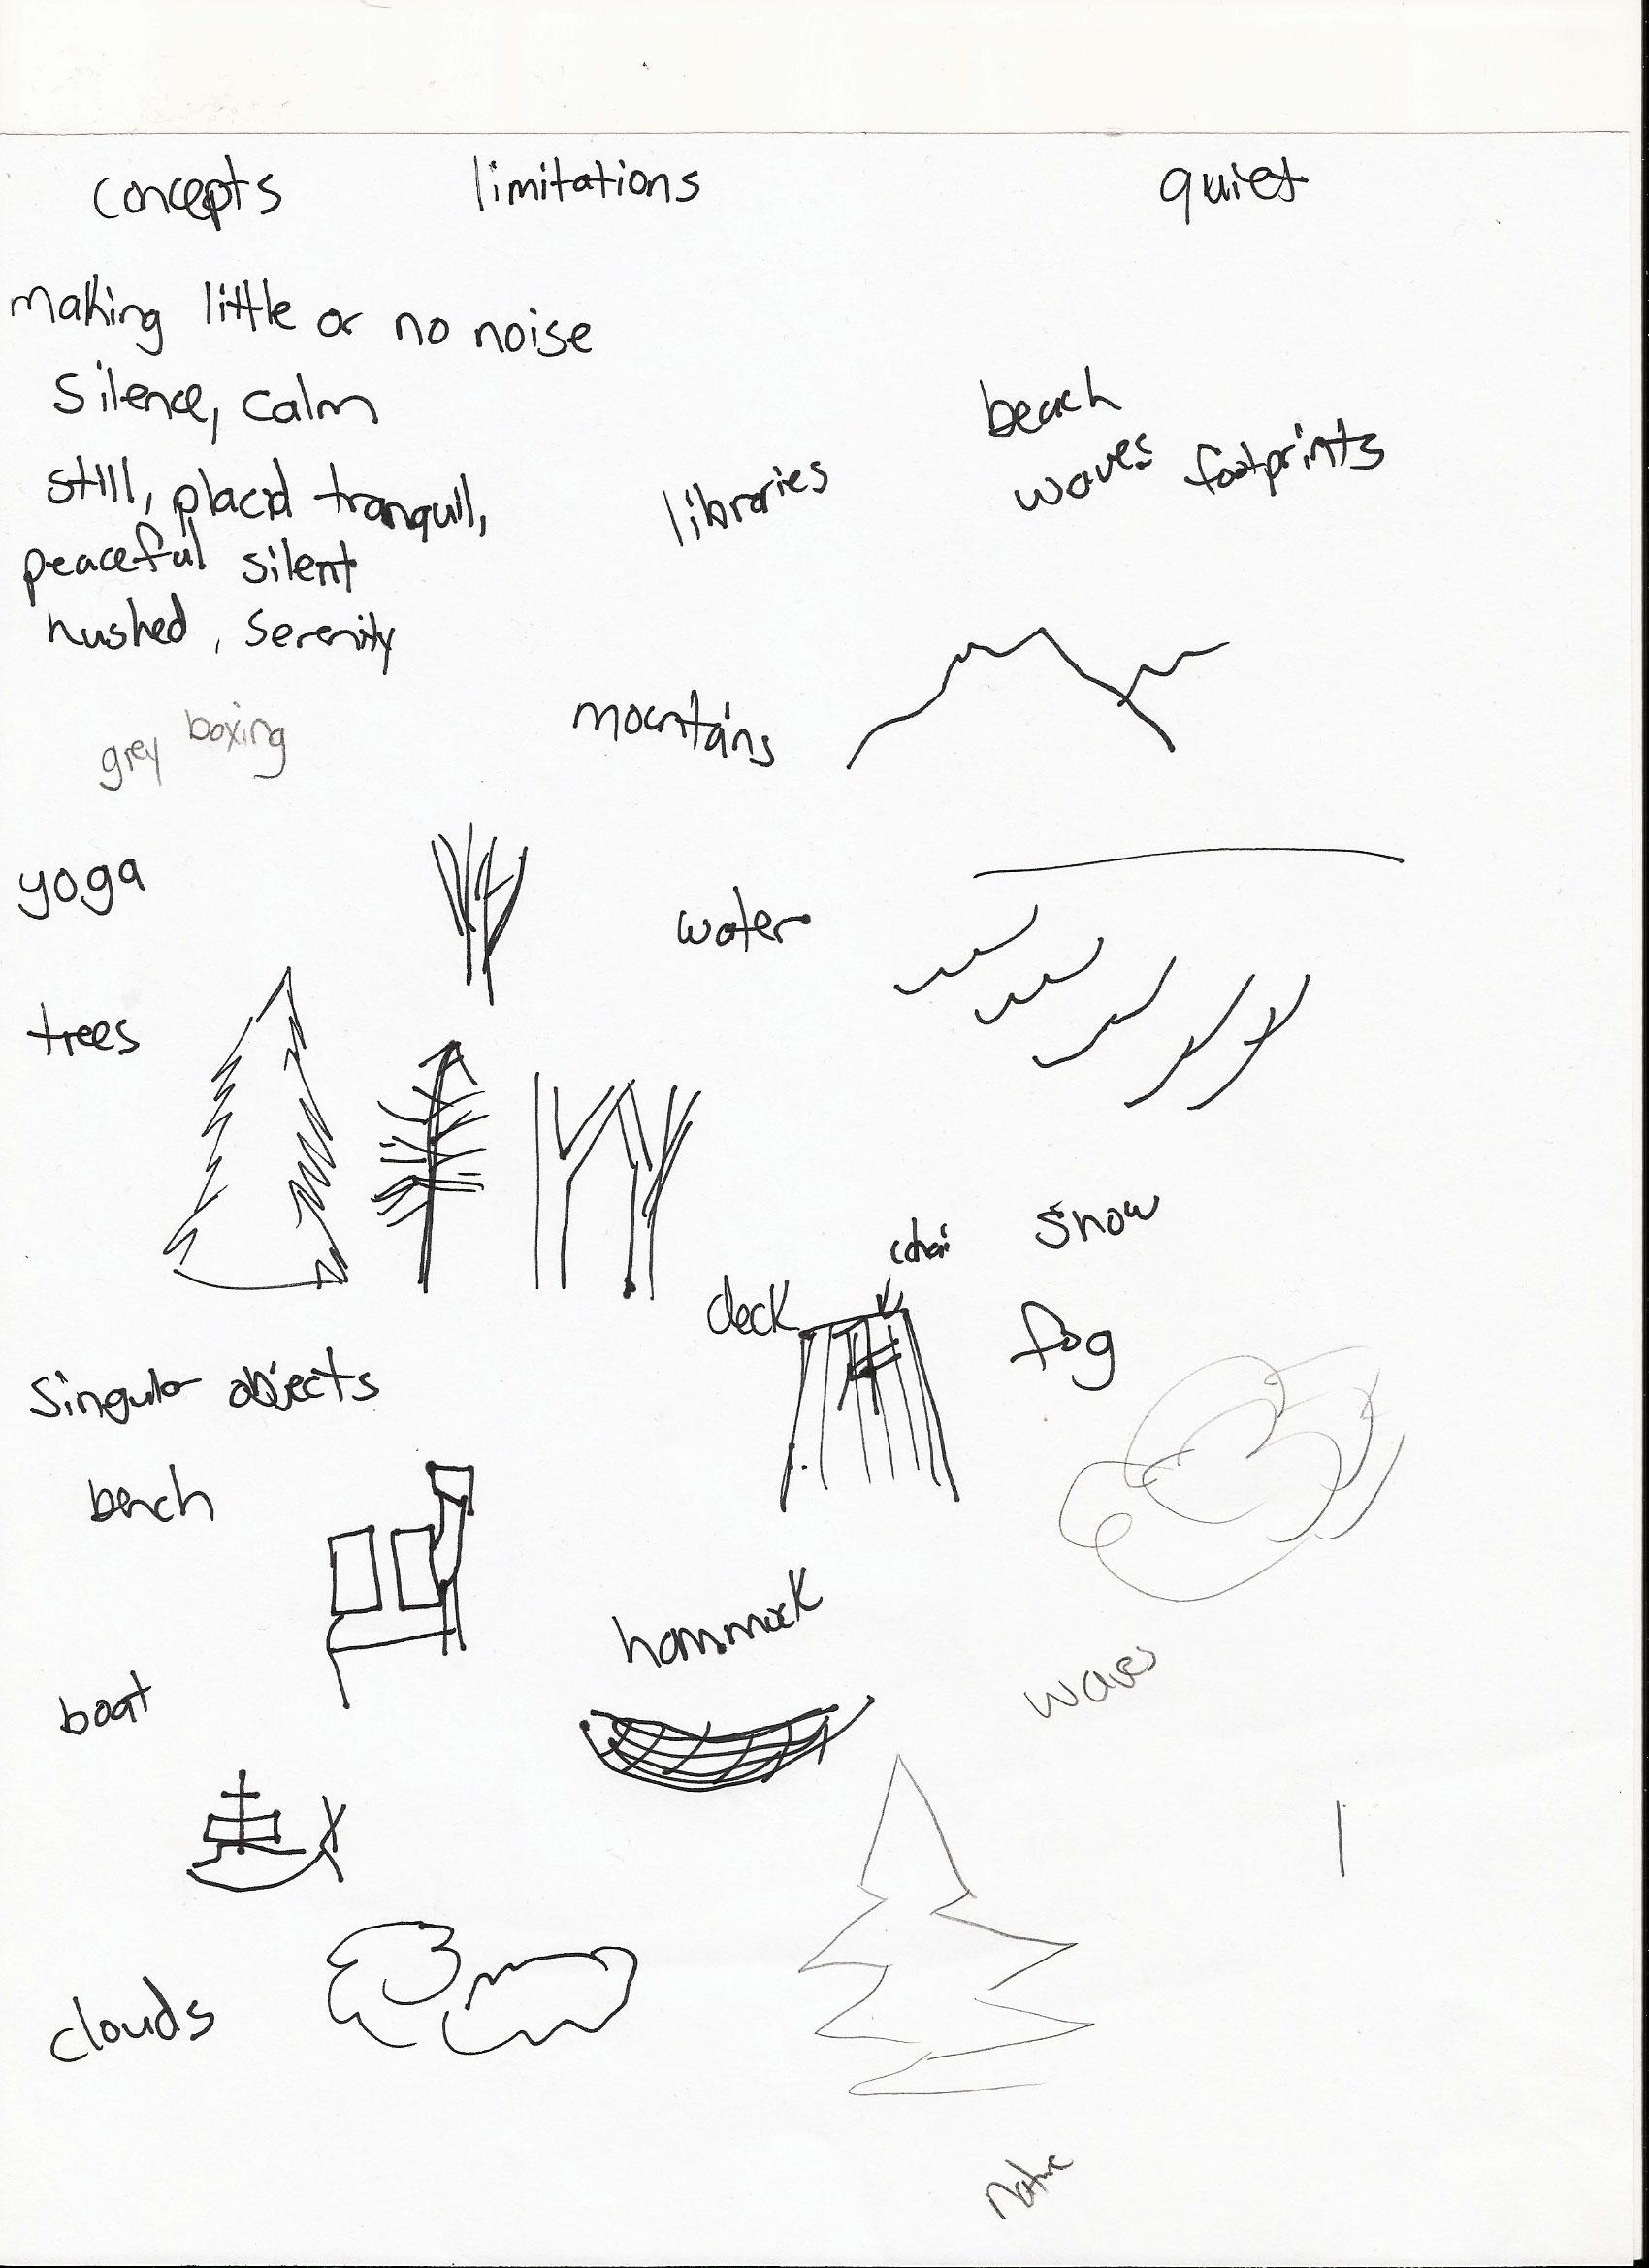 concepts limitations quiet
making little or no noise
Silence, calm
still, placid tranquil,
peaceful silent
hushed, serenity
beach
waves footprints
libraries
grey boxing
mountains
yoga
water
trees
snow
deck
fog
Singular objects
bench
hammock
boat
waves
clouds